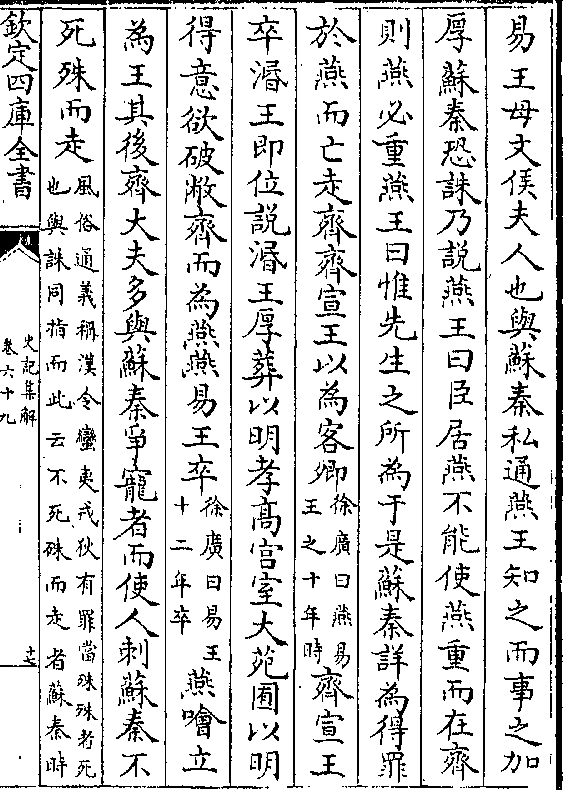 易王母文侯夫人也與蘇秦私通燕王知之而事之加
厚蘇秦恐誅乃說燕王曰臣居燕不能使燕重而在齊
則燕必重燕王曰惟先生之所為于是蘇秦詳為得罪
於燕而亡走齊齊宣王以為客卿徐廣曰燕易王之十年時齊宣王
卒湣王即位說湣王厚葬以明孝高宫室大苑囿以明
得意欲破敝齊而為燕燕易王卒徐廣曰易王十二年卒燕噲立
為王其後齊大夫多與蘇秦爭寵者而使人刺蘇秦不
死殊而走風俗通義稱漢令蠻夷戎狄有罪當殊殊者死也與誅同指而此云不死殊而走者蘇秦時
欽定四庫全書
史記集解
卷六十九
十七